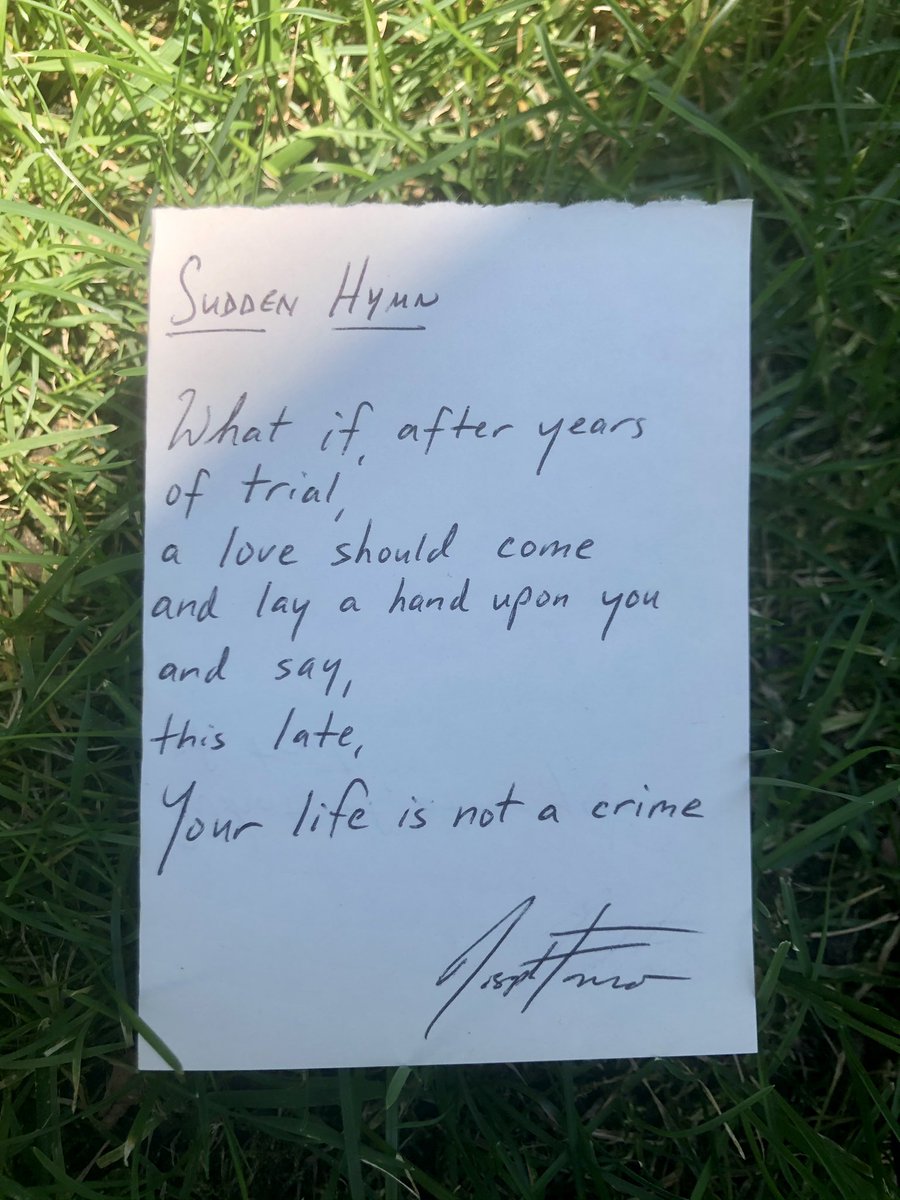 SUDDEN HYMN
What if, after years
of trial,
a love should come
and lay a hand upon you
and say,
this late,
Your life is not a crime